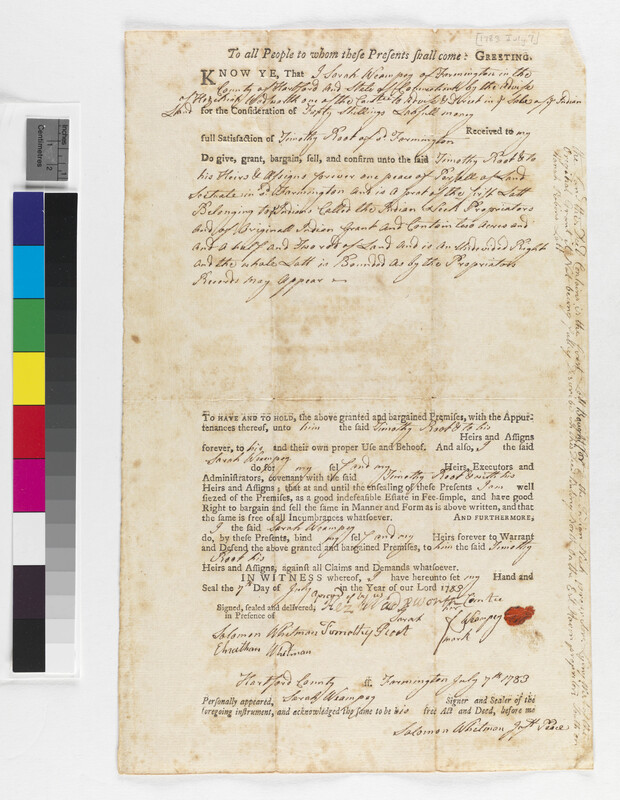 [1783 July 7]
To all People to whom these Presents shall come: GREETING.
KNOW YE, That I Sarah Wampey of Farmington in the
County of Hartford and State of Connecticut by the advise
of Hezekiah Wadsworth one of the Comtee to advise & Direct in ye Sale of ye Indian
Land for the Consideration of Fifty Shillings Lawfull money
Received to my
full Satisfaction of Timothy Root of sd Farmington
Do give, grant, bargain, sell, and confirm unto the said Timothy Root & to
his Heirs & Assigns forever one peace of Parsell of Land
Scituate in sd Farmington and is a part of the first Lott
Belonging to ye Indians Called the Indian Propriators
and of Originall Indian Grant and Contain two Acres and
and a half and two rod of Land and is an Undevided Right
and the whole Lott is Bounded as by the Propriators
Records may Appear
To HAVE AND TO HOLD, the above granted and bargained Premises, with the Appur-
tenances thereof, unto him the said Timothy Root & to his
Heirs and Assigns
forever, to his and their own proper Use and Behoof. And also, I the said
Sarah Wampey
do for my self and my Heirs, Executors and
Administrators, covenant with the said Timothy Root & with his
Heirs and Assigns; that at and until the ensealing of these Presents I am well
siezed of the Premises, as a good indefeasible Estate in Fee-simple, and have good
Right to bargain and sell the same in Manner and Form as is above written, and that
the same is free of all Incumbrances whatsoever. AND FURTHERMORE,
I the said Sarah Wampey
do, by these Presents, bind my self and my Heirs forever to Warrant
and Defend the above granted and bargained Premises, to him the said Timothy
Root his
Heirs and Assigns, against all Claims and Demands whatsoever.
IN WITNESS whereof, I have hereunto set my Hand and
Seal the 7th Day of July in the Year of our Lord 1783
Approved of by us
Signed, sealed and delivered, Hez Wadsworth Comtee
in Presence of Sarah her Wampey
mark
Solomon Whetman Timothy Root
Elnathan Whetman
Hartford County ss. Farmington July 7th 1783
Personally appeared, Sarah Wampey Signer and Sealer of the
foregoing instrument, and acknowledged the same to be his free Act and Deed, before me
Solomon Whetman Just Peace